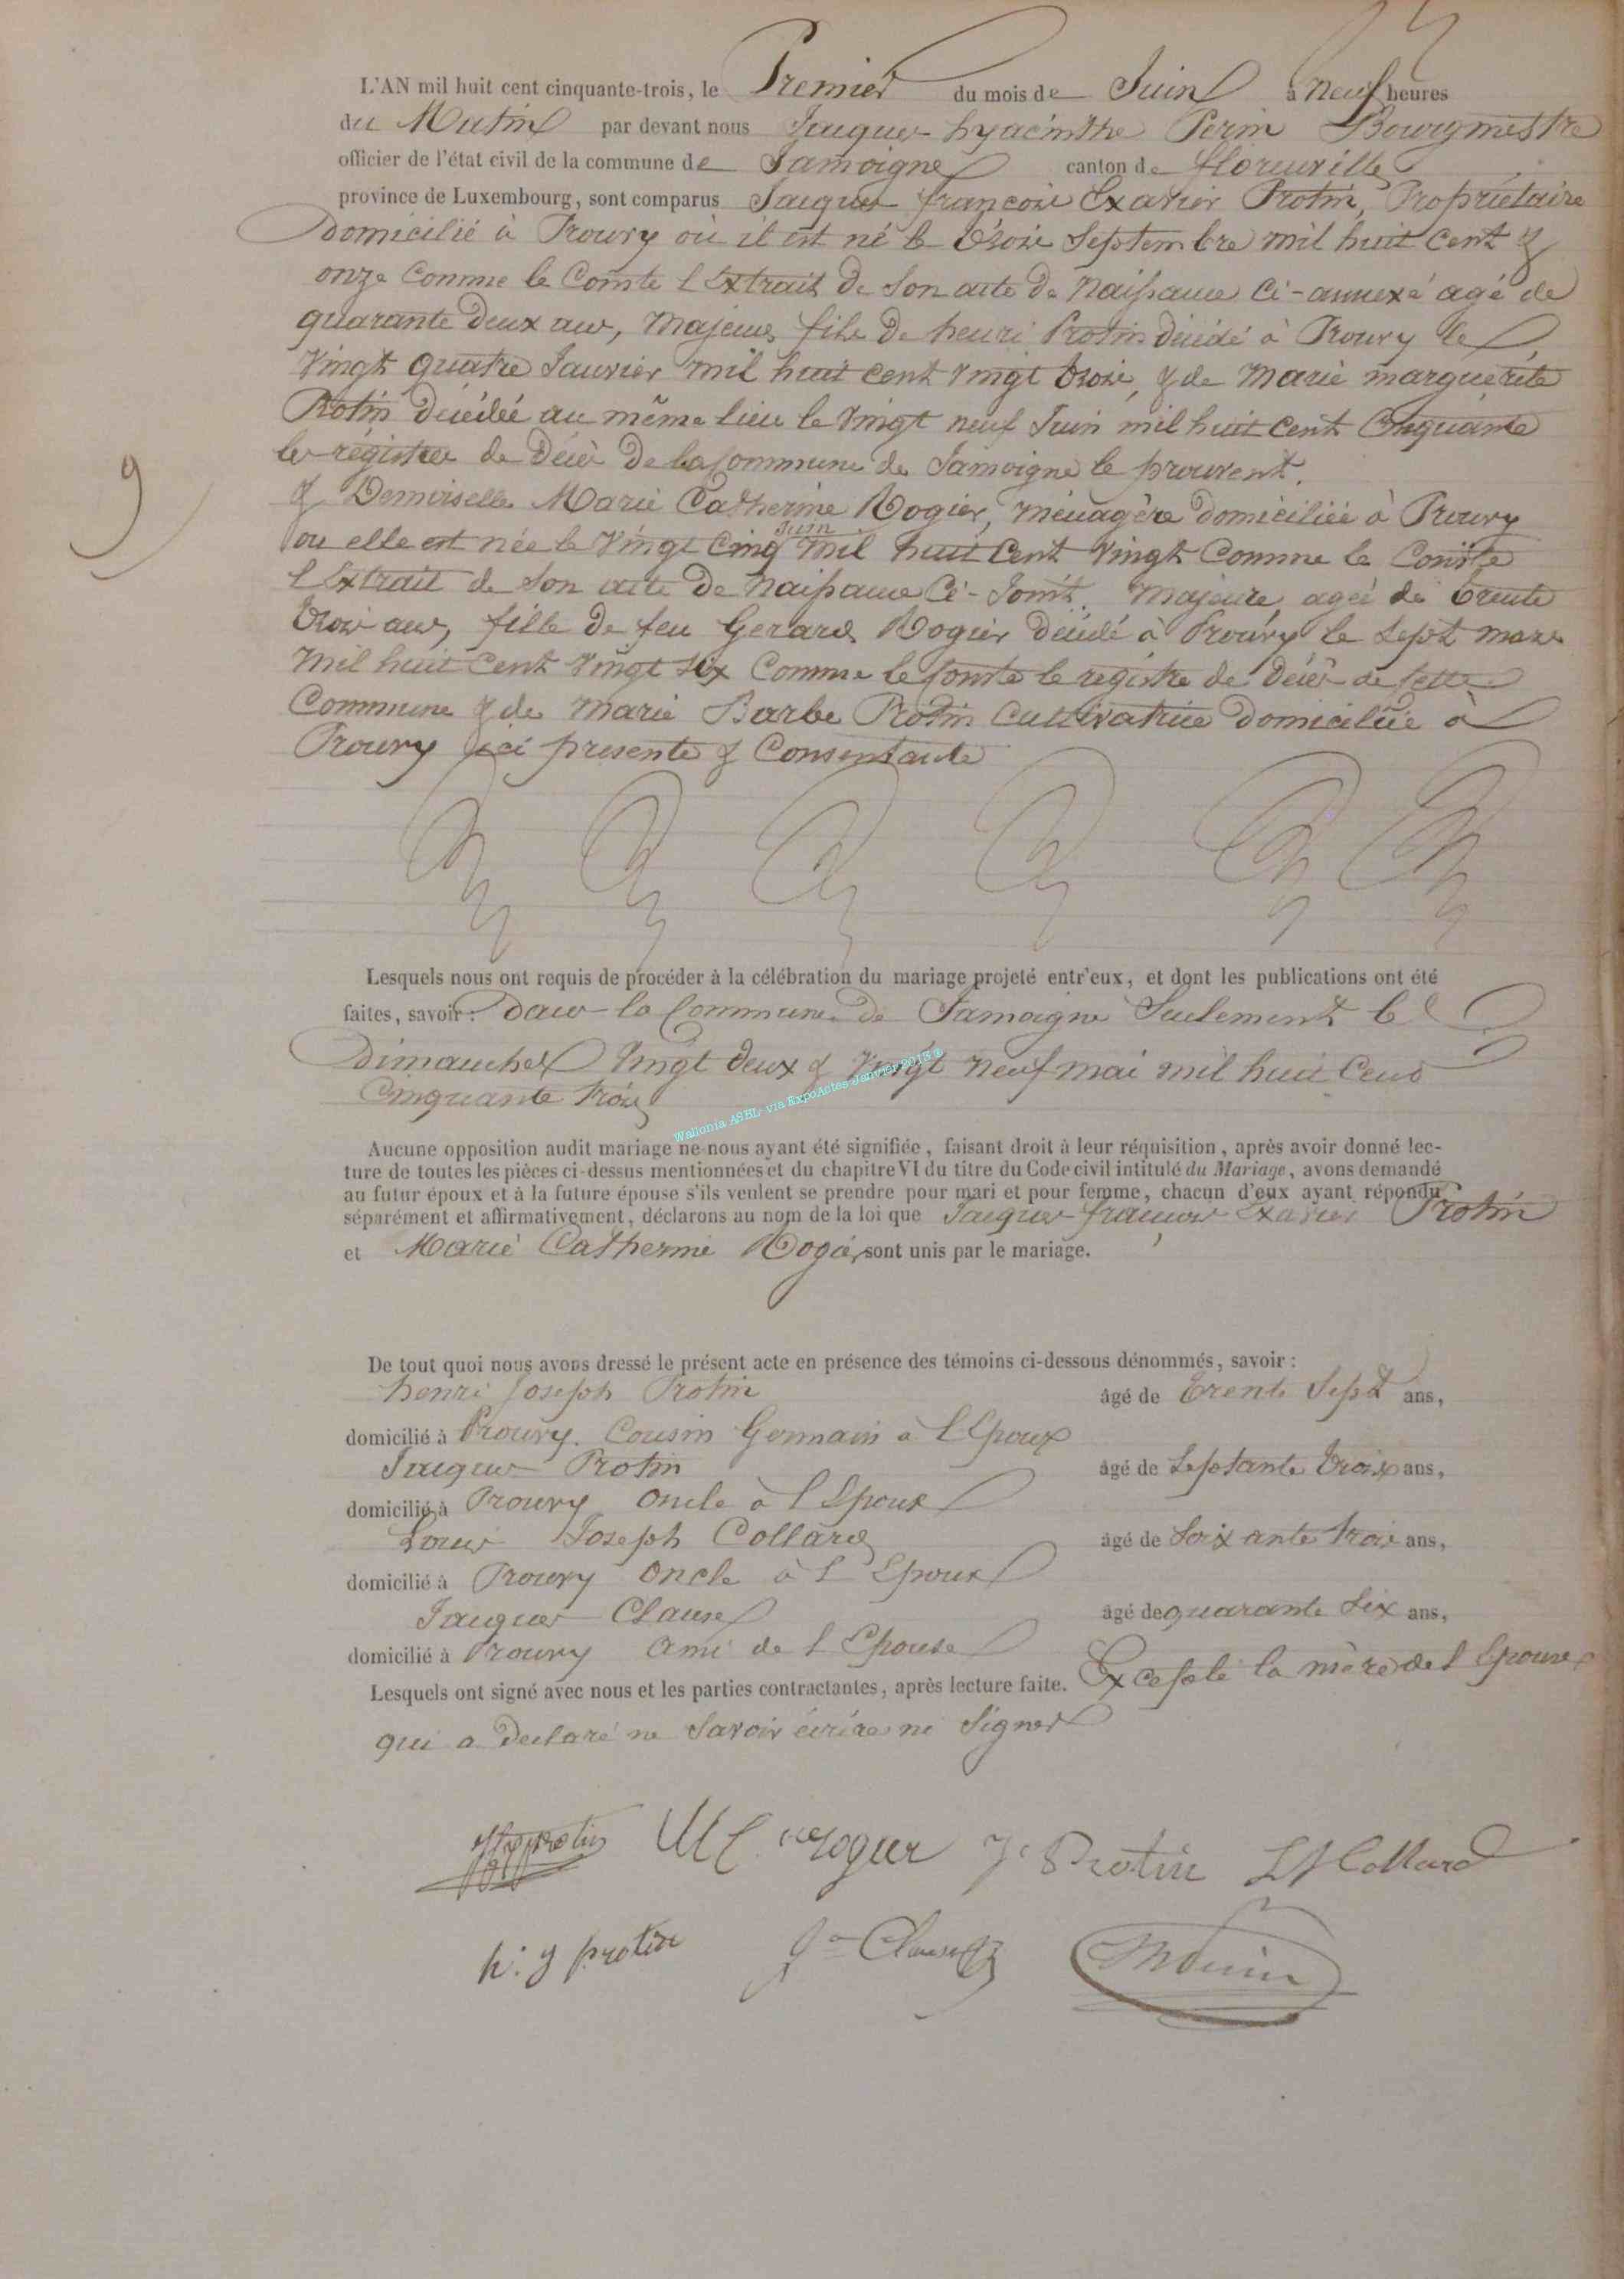 L'AN mil huit cent cinquante-trois, le Premier du mois de Juin à neuf heures
du Matin par devant nous Jacques hyacinthe Perin Bourgmestre
officier de l'état civil de la commune de Jamoigne canton de florenville
province de Luxembourg, sont comparus Jacques françois Exavier Protin, Propriétaire
Domicilié à Prouvy où il est né le trois Septembre mil huit cent &
onze Comme le Conste l'Extrait de Son acte de Naissance Ci-annexé agé de
quarante Deux ans, Majeur, fils de henri Protin décédé à Prouvy le
Vingt quatre Janvier mil huit cent vingt trois, & de Marie marguerite
Protin décédée au même lieu le Vingt neuf Juin mil huit cent Cinquante
les régistres de Décès de la Commune de Jamoigne le prouvent.
& Demoiselle Marie Catherine Rogier, ménagère domiciliée à Prouvy
ou elle est née le Vingt Cinq Juin mil huit Cent Vingt Comme le Conste
l'Extrait de Son acte de Naissance Ci-Joint. Majeure, agée de trente
trois ans, fille de feu Gerard Rogier décédé à Prouvy le Sept mars
Mil huit Cent Vingt Six Comme le Conste le régistre de Décès de Cette
Commune & de Marie Barbe Protin Cultivatrice Domiciliée à
Prouvy ici presente & Consentante
9
Lesquels nous ont requis de procéder à la célébration du mariage projeté entr'eux, et dont les publications ont été
faites, savoir: Dans la Commune de Jamoigne Seulement le
Dimanches Vingt Deux & Vingt neuf mai mil huit Cent
Cinquante trois
Wallonia ASBL via ExpoActes Janvier 2013 ®
Aucune opposition audit mariage ne nous ayant été signifiée, faisant droit à leur réquisition, après avoir donné lec-
ture de toutes les pièces ci-dessus mentionnées et du chapitre VI du titre du Code civil intitulé du Mariage, avons demandé
au futur époux et à la future épouse s'ils veulent se prendre pour mari et pour femme, chacun d'eux ayant répondu
séparément et affirmativement, déclarons au nom de la loi que Jacques françois Exavier Protin
et Marie Catherine Rogier sont unis par le mariage.
De tout quoi nous avons dressé le présent acte en présence des témoins ci-dessous dénommés, savoir:
henri Joseph Protin âgé de trente Sept ans,
domicilié à Prouvy. Cousin Germain à l'Epoux
Jacques Protin âgé de Septante trois ans,
domicilié à Prouvy Oncle à l'Epoux
Louis Joseph Collard âgé de Soixante trois ans,
domicilié à Prouvy Oncle à l'Epoux
Jacques Clause âgé de quarante Six ans,
domicilié à Prouvy Ami de l'Epouse
Lesquels ont signé avec nous et les parties contractantes, après lecture faite. Excepté la mère de l'Epouse
qui a Declaré ne Savoir écrire ni Signer
protin M C Rogier J Protin L J Collard
h: j protin J Clause